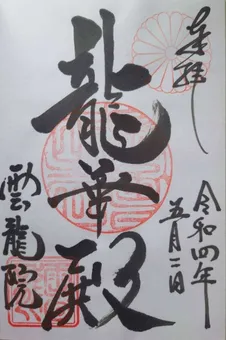 奉拝
令和四年
五月二日
龍華殿
雲龍院